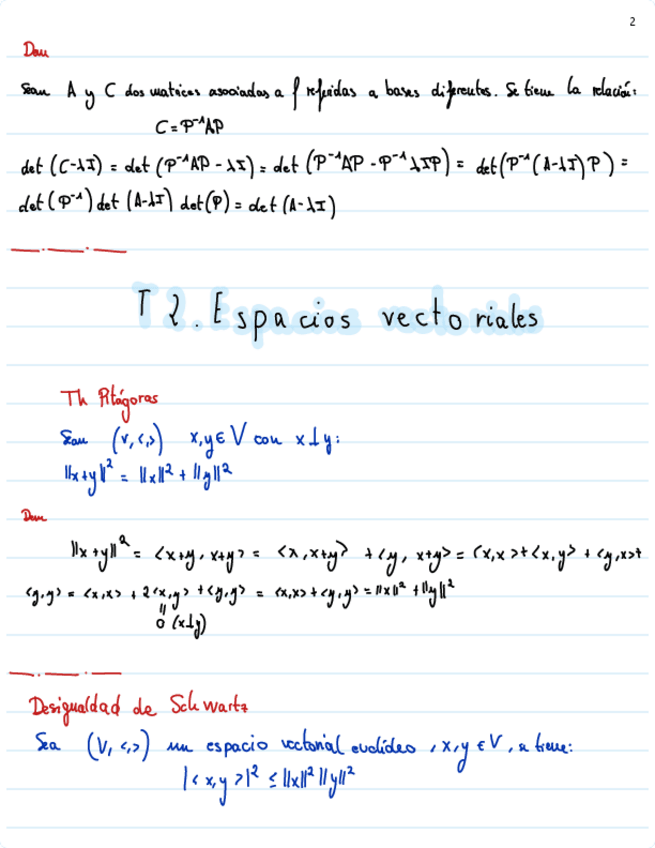 2
Dem
Sean A y C dos matrices asociadas a f referidas a bases diferentes. Se tiene la relación:
C = P⁻¹AP
det (C-λI) = det (P⁻¹AP - λI) = det (P⁻¹AP - P⁻¹λIP) = det(P⁻¹(A-λI)P) =
det (P⁻¹) det (A-λI) det(P) = det (A-λI)
T2. Espacios vectoriales
Th Pitágoras
Sean (V,<,>) x,y∈V con x⊥y:
||x+y||² = ||x||² + ||y||²
Dem
||x+y||² = <x+y, x+y> = <x, x+y> + <y, x+y> = <x,x> + <x,y> + <y,x> +
<y,y> = <x,x> + 2<x,y> + <y,y> = <x,x> + <y,y> = ||x||² + ||y||²
||
0 (x⊥y)
Desigualdad de Schwartz
Sea (V, <,>) un espacio vectorial euclídeo, x,y ∈ V, se tiene:
|<x,y>|² ≤ ||x||² ||y||²